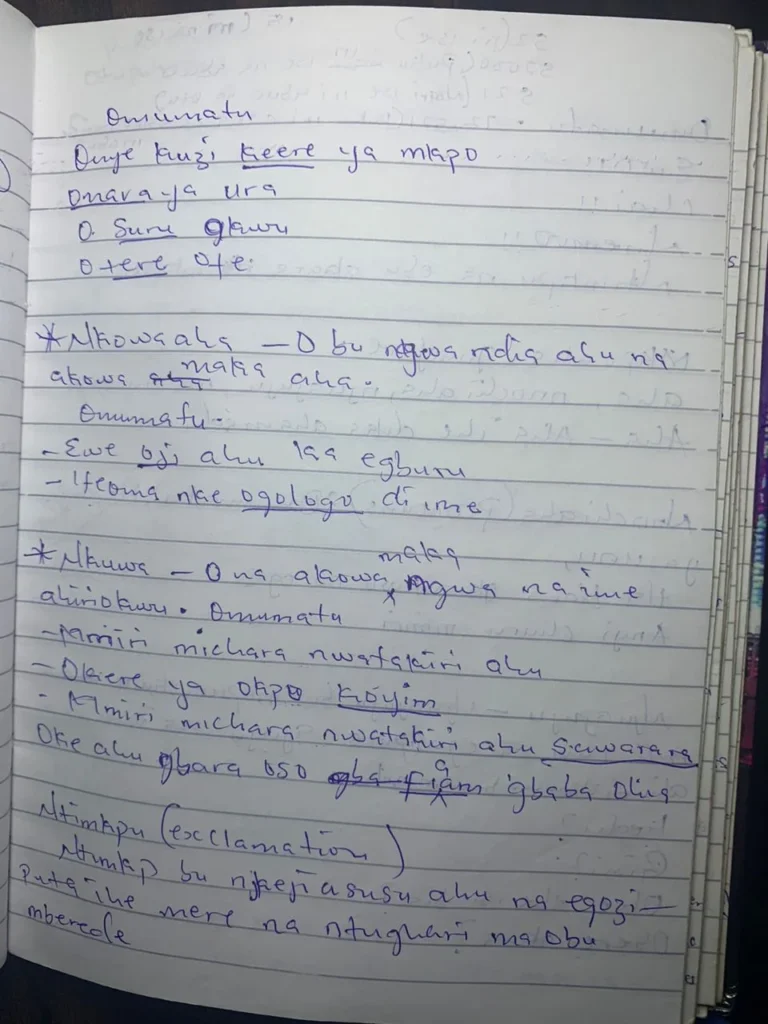 Omumatu
Onye kuzi keere ya mkpo
Onara ya ura
O Suru gkwu
O tere Ofe.
*Nkowaaha – O bu ngwa ndia ahu na
akowa maka aha.
Omumatu-
- Ewe oji ahu ka egburu
- Ifeoma nke ogologo di ime
*Nkuwa – O na akowa maka Ngwa na ime
ahiriokwu. Omumatu
- Mmiri michara nwatakiri ahu
- Okiere ya okpo koyim
- Mmiri michara nwatakiri ahu Sawarara
Oke ahu gbara oso gba fiam gbaba Olua
Ntimkpu (exclamation)
Ntimkp bu njkejiasusu ahu na egozi–
puta ihe mere na ntughari ma obu
mberede